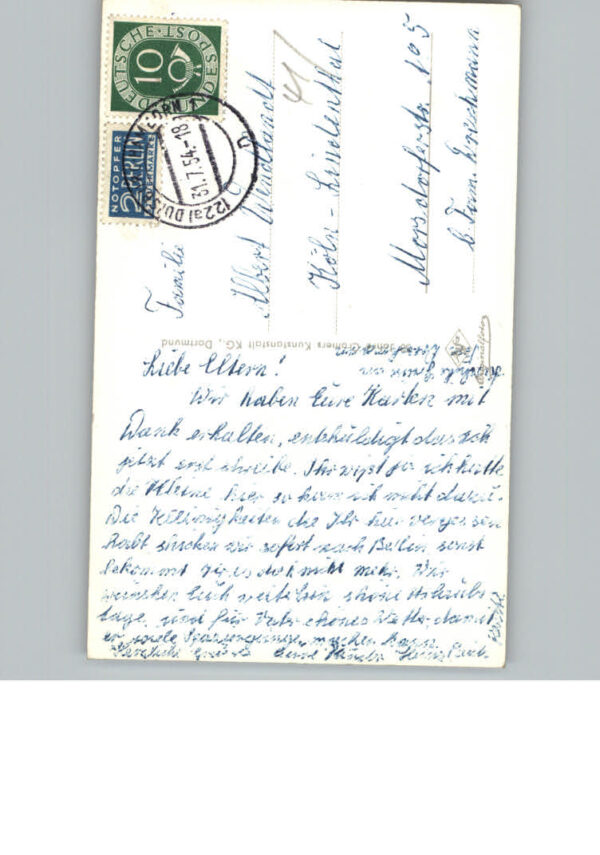 DEUTSCHE BUNDESPOST
10
NOTOPFER
2 BERLIN
STEUERMARKE
(22a) DUISBURG
31.7.54.-18
Familie
Albert Wendtlandt
Köln-Lindenthal
Morsdorferstr. No 5
b. Fam.
Gröners Kunstanstalt KG., Dortmund
Liebe Eltern!
Wir haben Eure Karten mit
Dank erhalten, entschuldigt das ich
jetzt erst schreibe. Ihr wist ja ich hatte
die Kleine hier so kam ich nicht dazu.
Die Kleinigkeiten die Ihr hier vergessen
habt schicken wir sofort nach Berlin sonst
bekommt Ihr es doch nicht mehr. Wir
wünschen Euch weiterhin schöne Urlaubs
tage und für Vater schönes Wetter damit
er viele Spaziergänge machen kann.
Herzliche Grüße Eure Kinder